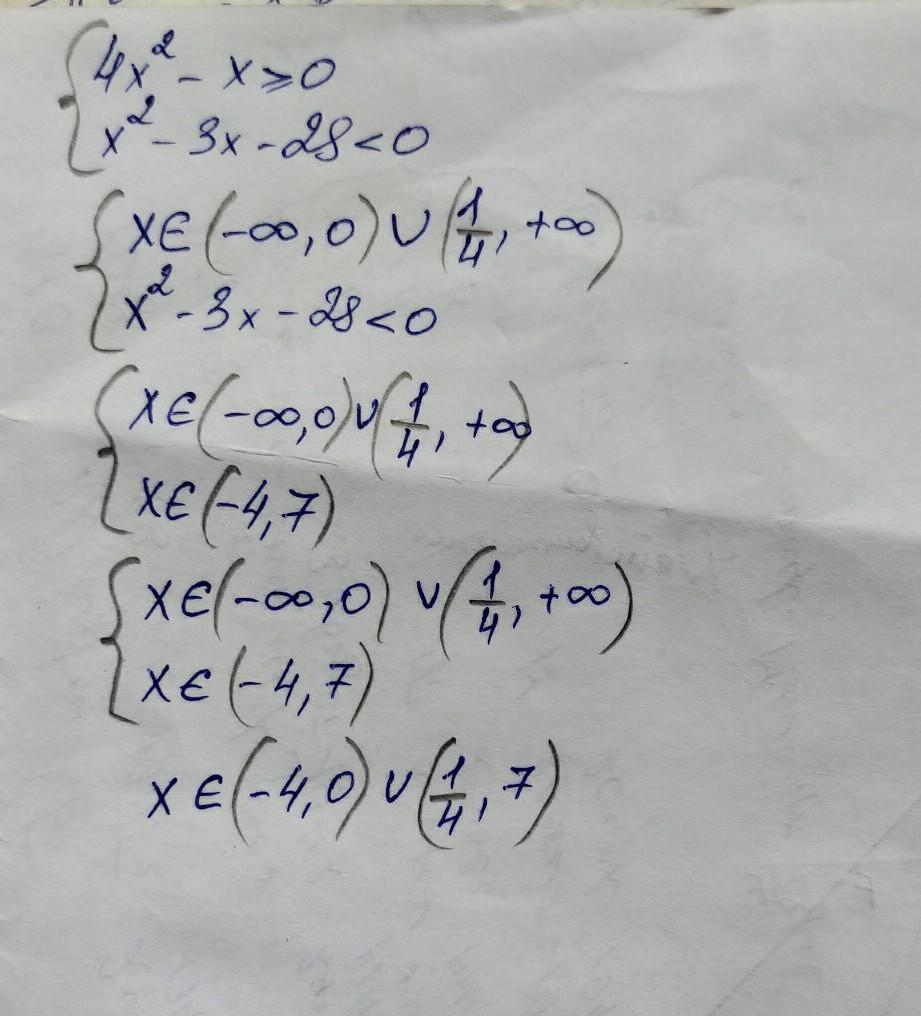 4x² - x ⩾ 0
x² - 3x - 28 < 0
x ∈ (-∞, 0) ∪ (1/4, +∞)
x² - 3x - 28 < 0
x ∈ (-∞, 0) ∪ (1/4, +∞)
x ∈ (-4, 7)
x ∈ (-∞, 0) ∪ (1/4, +∞)
x ∈ (-4, 7)
x ∈ (-4, 0) ∪ (1/4, 7)